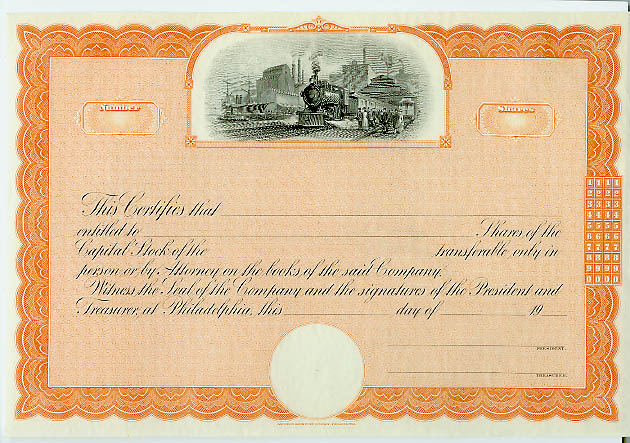 Number
Shares
This Certifies that
entitled to Shares of the
Capital Stock of the transferable only in
person or by Attorney on the books of the said Company.
Witness the Seal of the Company and the signatures of the President and
Treasurer, at Philadelphia, this day of 19
1 1 1 1
2 2 2 2
3 3 3 3
4 4 4 4
5 5 5 5
6 6 6 6
7 7 7 7
8 8 8 8
9 9 9 9
0 0 0 0
PRESIDENT.
TREASURER.